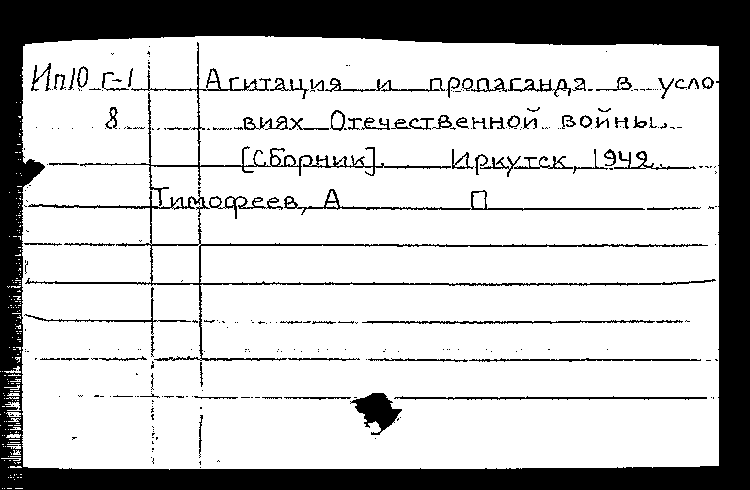 Ип10 г-1 Агитация и пропаганда в усло-
8 виях Отечественной войны.
[Сборник]. Иркутск, 1942.
Тимофеев, А П